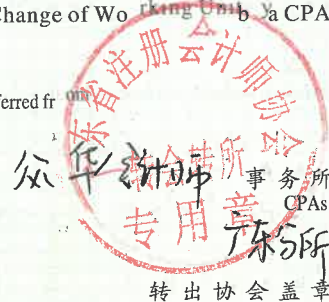 Change of Working Unit by a CPA
ferred from
东省注册会计师协会
众华会计师 事务所
CPAs
转会转所
专用章
广东分所
转出协会盖章